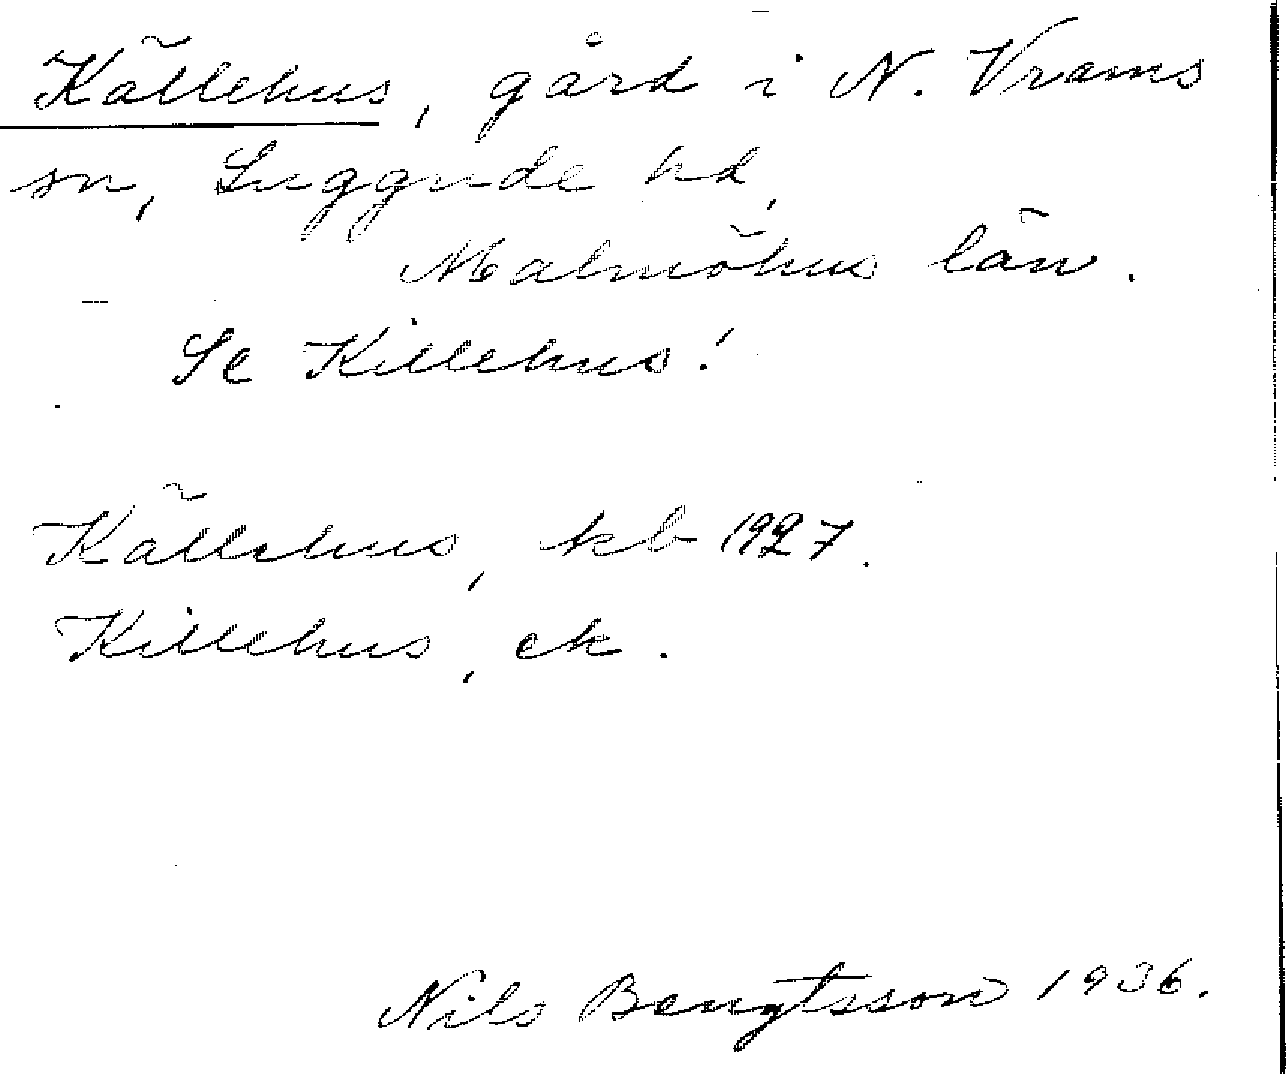 Källehus, gård i N. Vrams
sn, Luggude hd,
Malmöhus län.
Se Killehus!
Källehus, kb 1927.
Killehus, ek.
Nils Bengtsson 1936.